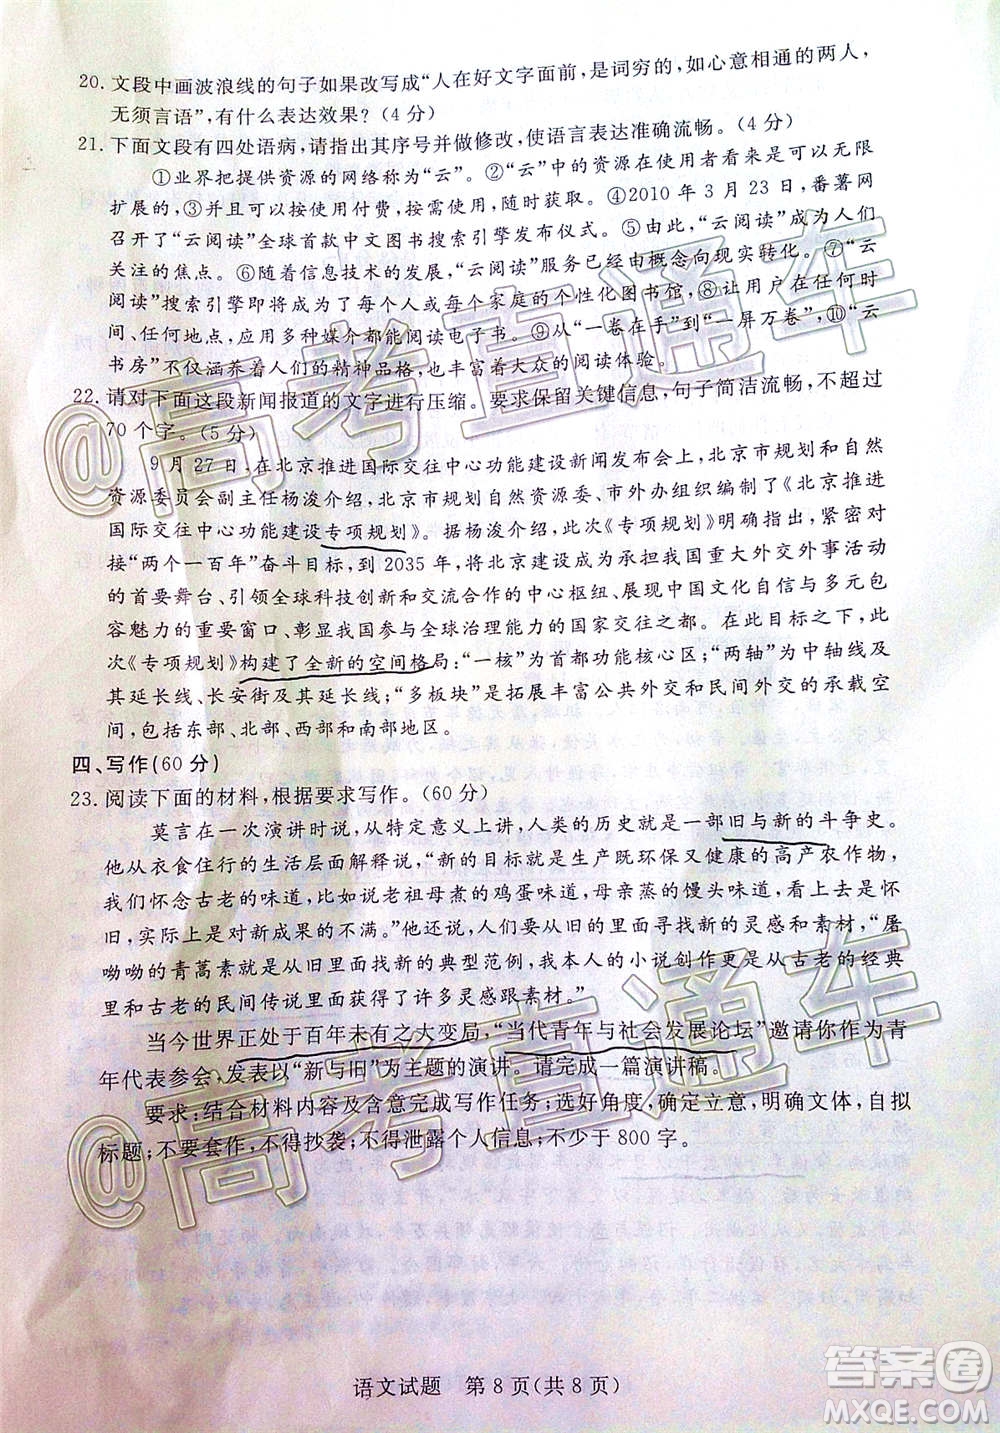 20. 文段中画波浪线的句子如果改写成“人在好文字面前，是词穷的，如心意相通的两人，
无须言语”，有什么表达效果？(4分)
21. 下面文段有四处语病，请指出其序号并做修改，使语言表达准确流畅。(4分)
①业界把提供资源的网络称为“云”。②“云”中的资源在使用者看来是可以无限
扩展的，③并且可以按使用付费，按需使用，随时获取。④2010年3月23日，番薯网
召开了“云阅读”全球首款中文图书搜索引擎发布仪式。⑤以此，“云阅读”成为人们
关注的焦点。⑥随着信息技术的发展，“云阅读”服务已经由概念向现实转化。⑦“云
阅读”搜索引擎即将成为了每个人或每个家庭的个性化图书馆，⑧让用户在任何时
间、任何地点，应用多种媒介都能阅读电子书。⑨从“一卷在手”到“一屏万卷”，⑩“云
书房”不仅涵养着人们的精神品格，也丰富着大众的阅读体验。
22. 请对下面这段新闻报道的文字进行压缩。要求保留关键信息，句子简洁流畅，不超过
70个字。(5分)
9月27日，在北京推进国际交往中心功能建设新闻发布会上，北京市规划和自然
资源委员会副主任杨浚介绍，北京市规划自然资源委、市外办组织编制了《北京推进
国际交往中心功能建设专项规划》。据杨浚介绍，此次《专项规划》明确指出，充分对
接“两个一百年”奋斗目标，到2035年，将北京建设成为承担我国重大外交外事活动
的首要舞台、引领全球科技创新和交流合作的中心枢纽、展现中国文化自信与多元包
容魅力的重要窗口、彰显我国参与全球治理能力的国家交往之都。在此目标之下，此
次《专项规划》构建了全新的空间格局：“一核”为首都功能核心区；“两轴”为中轴线及
其延长线、长安街及其延长线；“多板块”是拓展丰富公共外交和民间外交的承载空
间，包括东部、北部、西部和南部地区。
四、写作(60分)
23. 阅读下面的材料，根据要求写作。(60分)
莫言在一次演讲时说，从特定意义上讲，人类的历史就是一部旧与新的斗争史。
他从衣食住行的生活层面解释说，“新的目标就是生产既环保又健康的高产农作物，
我们怀念古老的味道，比如说老祖母煮的鸡蛋味道，母亲蒸的馒头味道，看起来是怀
旧，实际上是对新成果的不满。”他还说，人们要从旧的里面寻找新的灵感和素材，“屠
呦呦的青蒿素就是从旧里面找新的典型范例，我本人的小说创作更是从古老的经典
里和古老的民间传说里面获得了许多灵感跟素材。”
当今世界正处于百年未有之大变局，“当代青年与社会发展论坛”邀请你作为青
年代表参会，发表以“新与旧”为主题的演讲。请完成一篇演讲稿。
要求：结合材料内容及含意完成写作任务；选好角度，确定立意，明确文体，自拟
标题；不要套作，不得抄袭；不得泄露个人信息；不少于800字。
语文试题 第8页(共8页)
@高考直通车
@高考直通车
答案卷
MXQE.COM